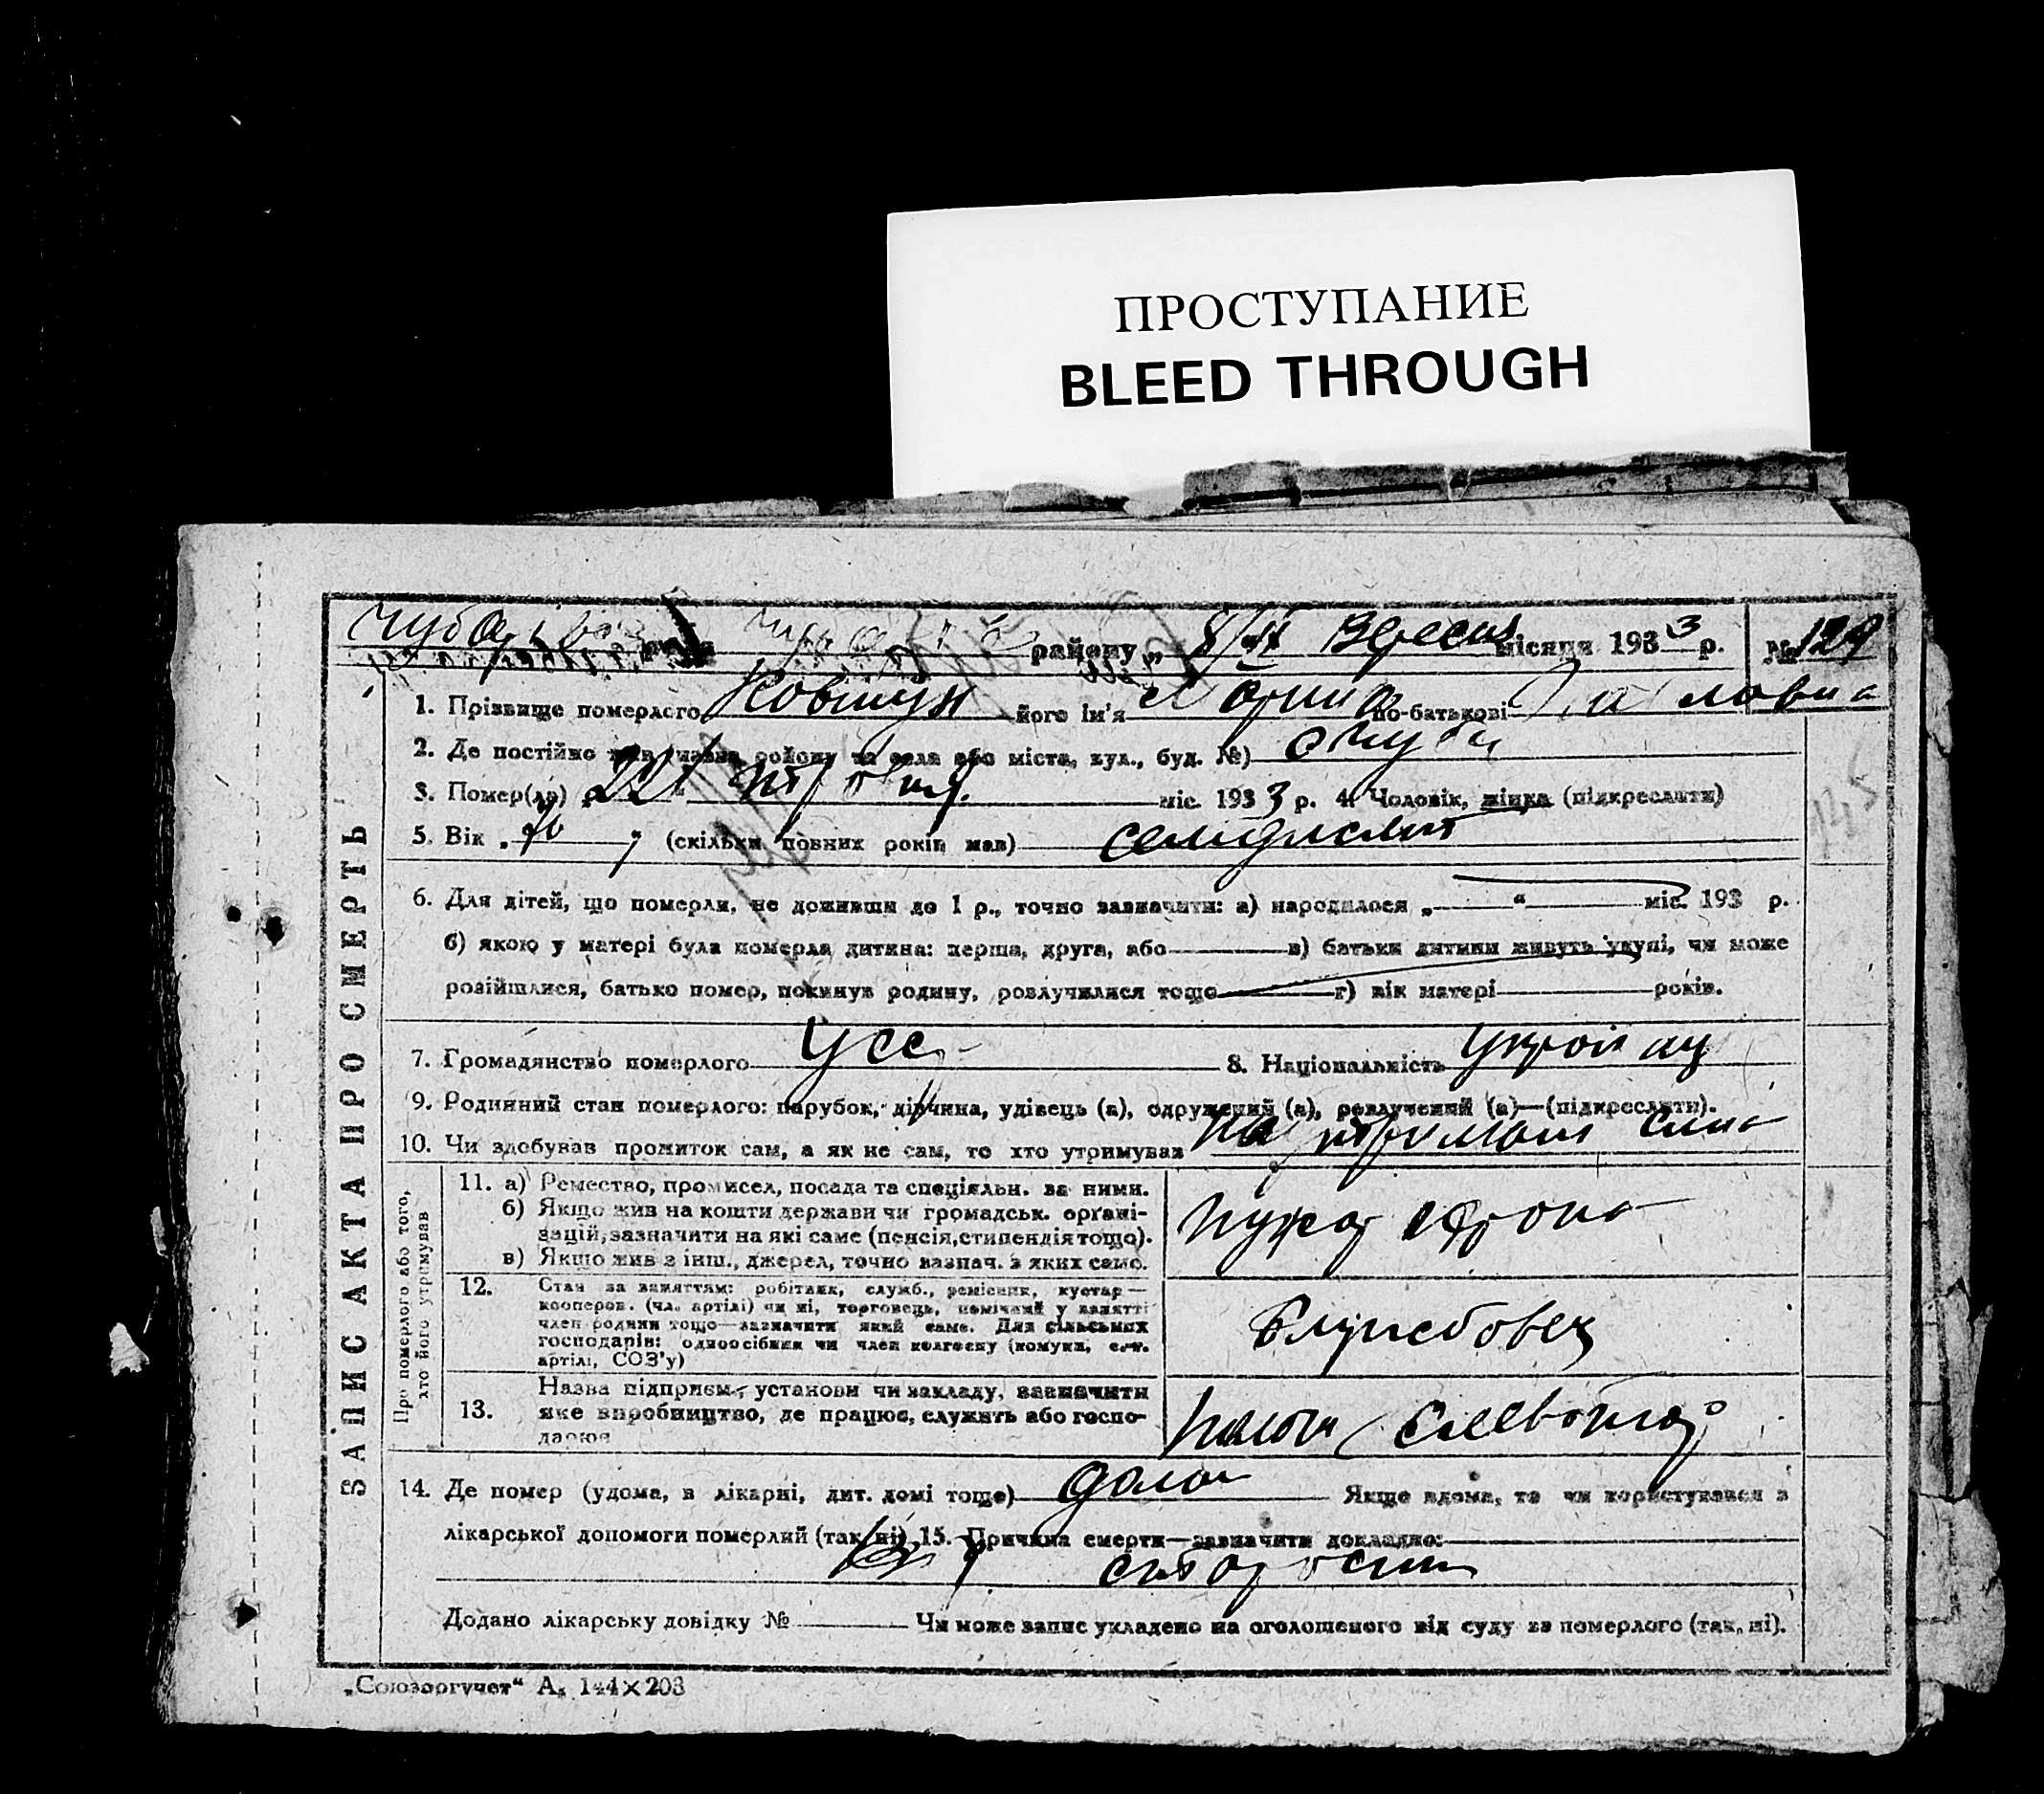 ПРОСТУПАНИЕ
BLEED THROUGH
району „ 8/ІХ Вересня місяця 1933 р. № 129
ЗАПИС АКТА ПРО СМЕРТЬ
1. Прізвище померлого Ковтун його ім'я по-батькові Павловна
2. Де постійно жив (назва району та села або міста, вул., буд. №)
3. Помер(ла) „22" травня міс. 1933 р. 4. Чоловік, жінка (підкреслити)
5. Вік „70" (скільки повних років мав) семдесят
6. Для дітей, що померли, не доживши до 1 р., точно зазначити: а) народилося „ " міс. 193 р.
б) якою у матері була померла дитина: перша, друга, або в) батьки дитини живуть укупі, чи може
розійшлися, батько помер, покинув родину, розлучилися тощо г) вік матері років.
7. Громадянство померлого УССР 8. Національність україн
9. Родинний стан померлого: парубок, дівчина, удівець (а), одружений (а), розлучений (а)—(підкреслити).
10. Чи здобував прожиток сам, а як не сам, то хто утримував на утриманні сина
Про померлого або того, хто його утримував
11. а) Ремество, промисел, посада та спеціяльн. за ними.
б) Якщо жив на кошти держави чи громадськ. органі-
зацій, зазначити на які саме (пенсія, стипендія тощо).
в) Якщо жив з інш., джерел, точно зазнач. з яких само.
12. Стан за заняттям: робітник, служб., ремісник, кустар—
кооперов. (чл. артілі) чи ні, торговець, помічний у занятті
член родини тощо—зазначити який саме. Для сільських
господарів: одноосібник чи член колгоспу (комуни, с.-г.
артілі, СОЗ'у)
Службовец
13. Назва підприєм., установи чи закладу, зазначити
яке виробництво, де працює, служить або госпо-
дарює
14. Де помер (удома, в лікарні, дит. домі тощо) дома Якщо вдома, то чи користувався з
лікарської допомоги померлий (так, ні) 15. Причина смерти—зазначити докладно:
старости
Додано лікарську довідку № Чи може запис укладено на оголошеного від суду за померлого (так, ні).
„Союзоргучет" А₅ 144×203